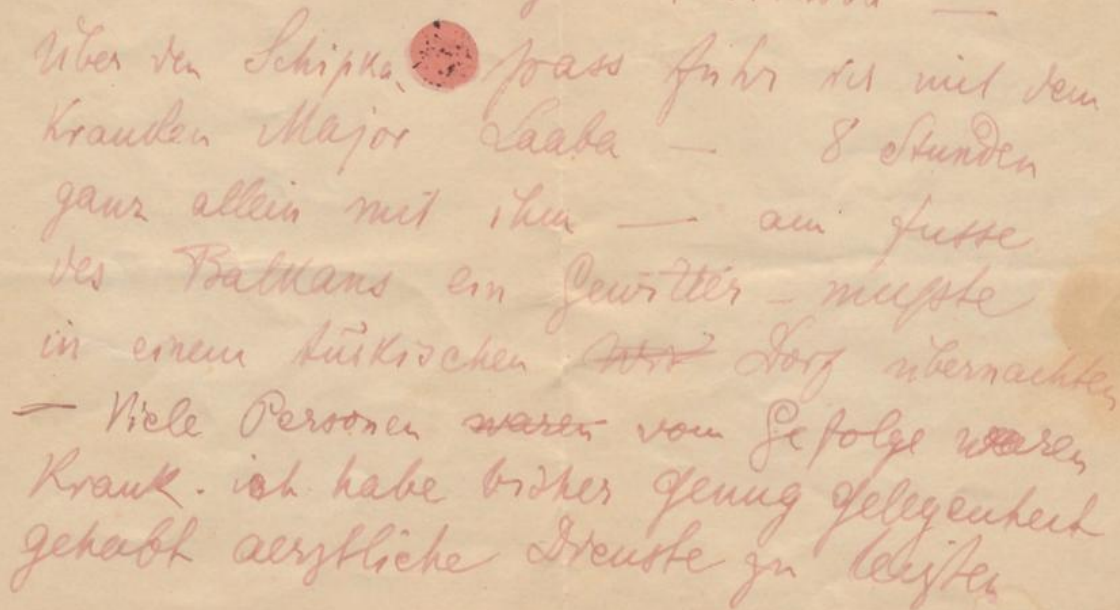 Über den Schipka pass fuhr ich mit dem
Kranken Major Laaba — 8 Stunden
ganz allein mit ihm — am fusse
des Balkans ein Gewitter – mußte
in einem türkischen Dorf übernachten
— Viele Personen waren vom Gefolge waren
Krank. ich habe bisher genug gelegenheit
gehabt aerztliche Dienste zu leisten